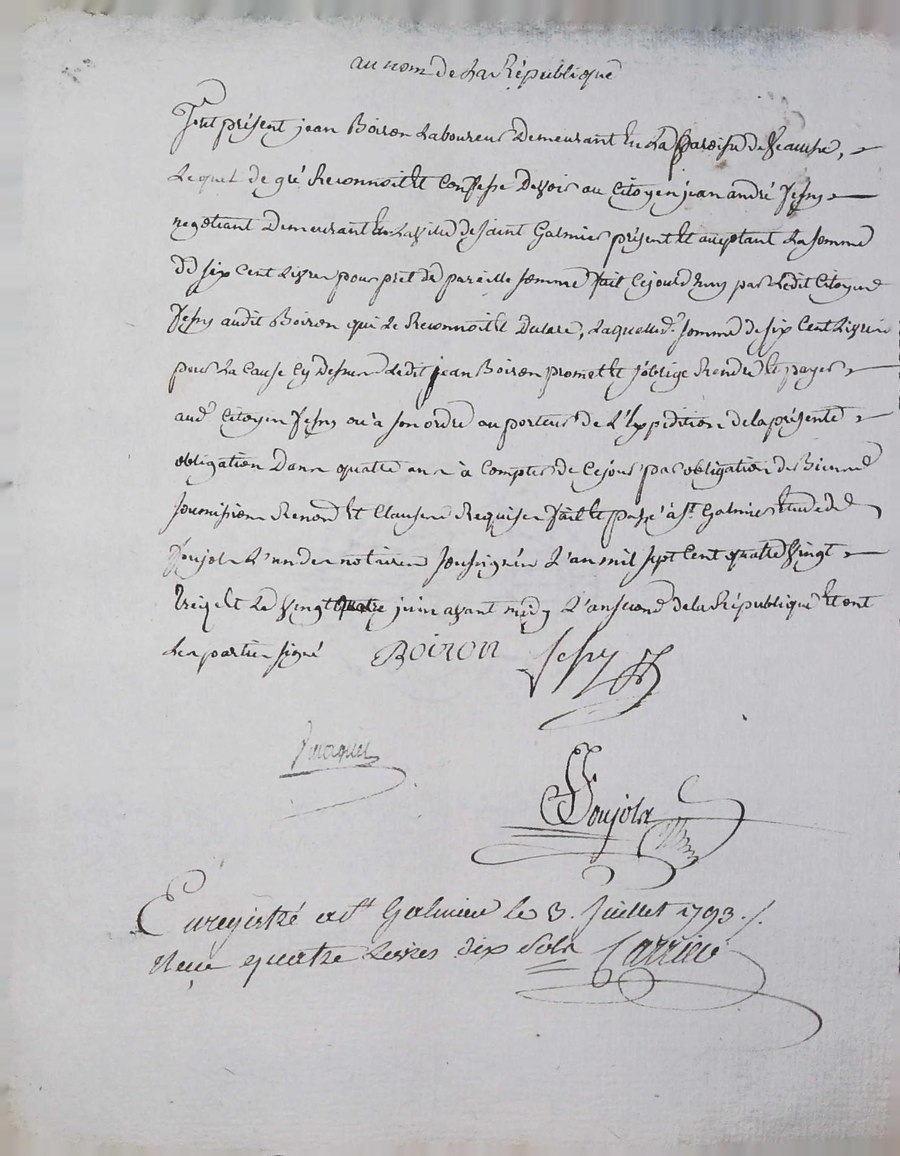 au nom de la République
fut présent jean Boiron Laboureur Demeurant En La paroisse de
Lequel de gré Reconnoit Et Confesse Devoir au Citoyen jean andré
negotiant Demeurant En La ville de Saint Galmier présent Et acceptant La somme
de six Cent Livres pour pret de pareille somme fait Cejourd'huy par Ledit Citoyen
audit Boiron qui Le Reconnoit Et Declare, Laquelle d. somme de six Cent Livres
pour La Cause Cy Dessus Ledit jean Boiron promet Et s'oblige Rendre Et payer
aud. Citoyen ou à son ordre au porteur de L'Expedition de la présente
obligation Dans quatre ans à Compter de Cejour par obligation de Biens
soumission Renon. Et Clauses Requises fait Et passé à St. Galmier Etude de
Poujols L'un des notaires soussignés L'an mil sept Cent quatre Vingt
treize Et Le Vingt quatre juin avant midy L'an second de la République Et ont
Les parties signé Boiron
Poujols
Enregistré a St Galmier le 3. Juillet 1793./.
Reçu quatre Livres dix Sols Carrieu